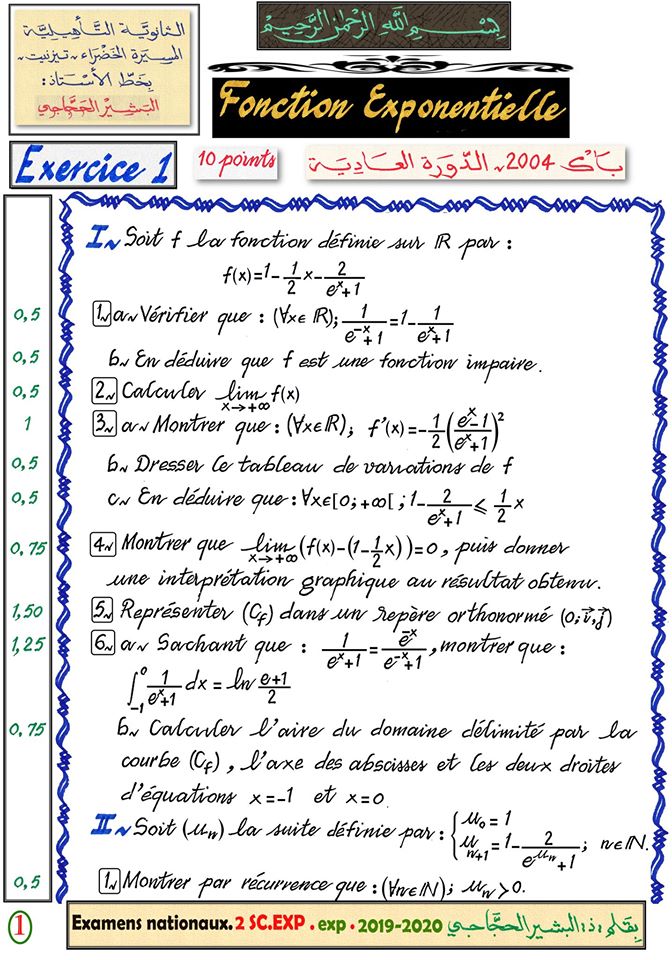 الثانويَّة التَّأهيليَّة
المسيرة الخضراء - تيزنيت -
بخطّ الأستاذ:
البشير الحجّاجي
بِسْمِ اللَّهِ الرَّحْمَنِ الرَّحِيمِ
Fonction Exponentielle
Exercice 1
10 points
باك 2004، الدّورة العاديّة
I~ Soit f la fonction définie sur ℝ par :
f(x)=1-1/2 x-2/(e^x+1)
0,5 1~ a~ Vérifier que : (∀x∈ℝ); 1/(e^-x+1)=1-1/(e^x+1)
0,5 b~ En déduire que f est une fonction impaire.
0,5 2~ Calculer lim x→+∞ f(x)
1 3~ a~ Montrer que : (∀x∈ℝ); f'(x)=-1/2((e^x-1)/(e^x+1))²
0,5 b~ Dresser le tableau de variations de f
0,5 c~ En déduire que : ∀x∈[0;+∞[ ; 1-2/(e^x+1) ⩽ 1/2 x
0,75 4~ Montrer que lim x→+∞ (f(x)-(1-1/2 x))=0, puis donner
une interprétation graphique au résultat obtenu.
1,50 5~ Représenter (Cf) dans un repère orthonormé (o;i⃗,j⃗)
1,25 6~ a~ Sachant que : 1/(e^x+1)=e^-x/(e^-x+1), montrer que :
∫_-1^0 1/(e^x+1) dx = ln (e+1)/2
0,75 b~ Calculer l'aire du domaine délimité par la
courbe (Cf), l'axe des abscisses et les deux droites
d'équations x=-1 et x=0
II~ Soit (un) la suite définie par : { u0=1
u_n+1=1-2/(e^un+1) ; n∈ℕ.
0,5 1~ Montrer par récurrence que : (∀n∈ℕ); un>0.
1
Examens nationaux.2 SC.EXP . exp . 2019-2020 بقلم ذ: البشير الحجّاجي